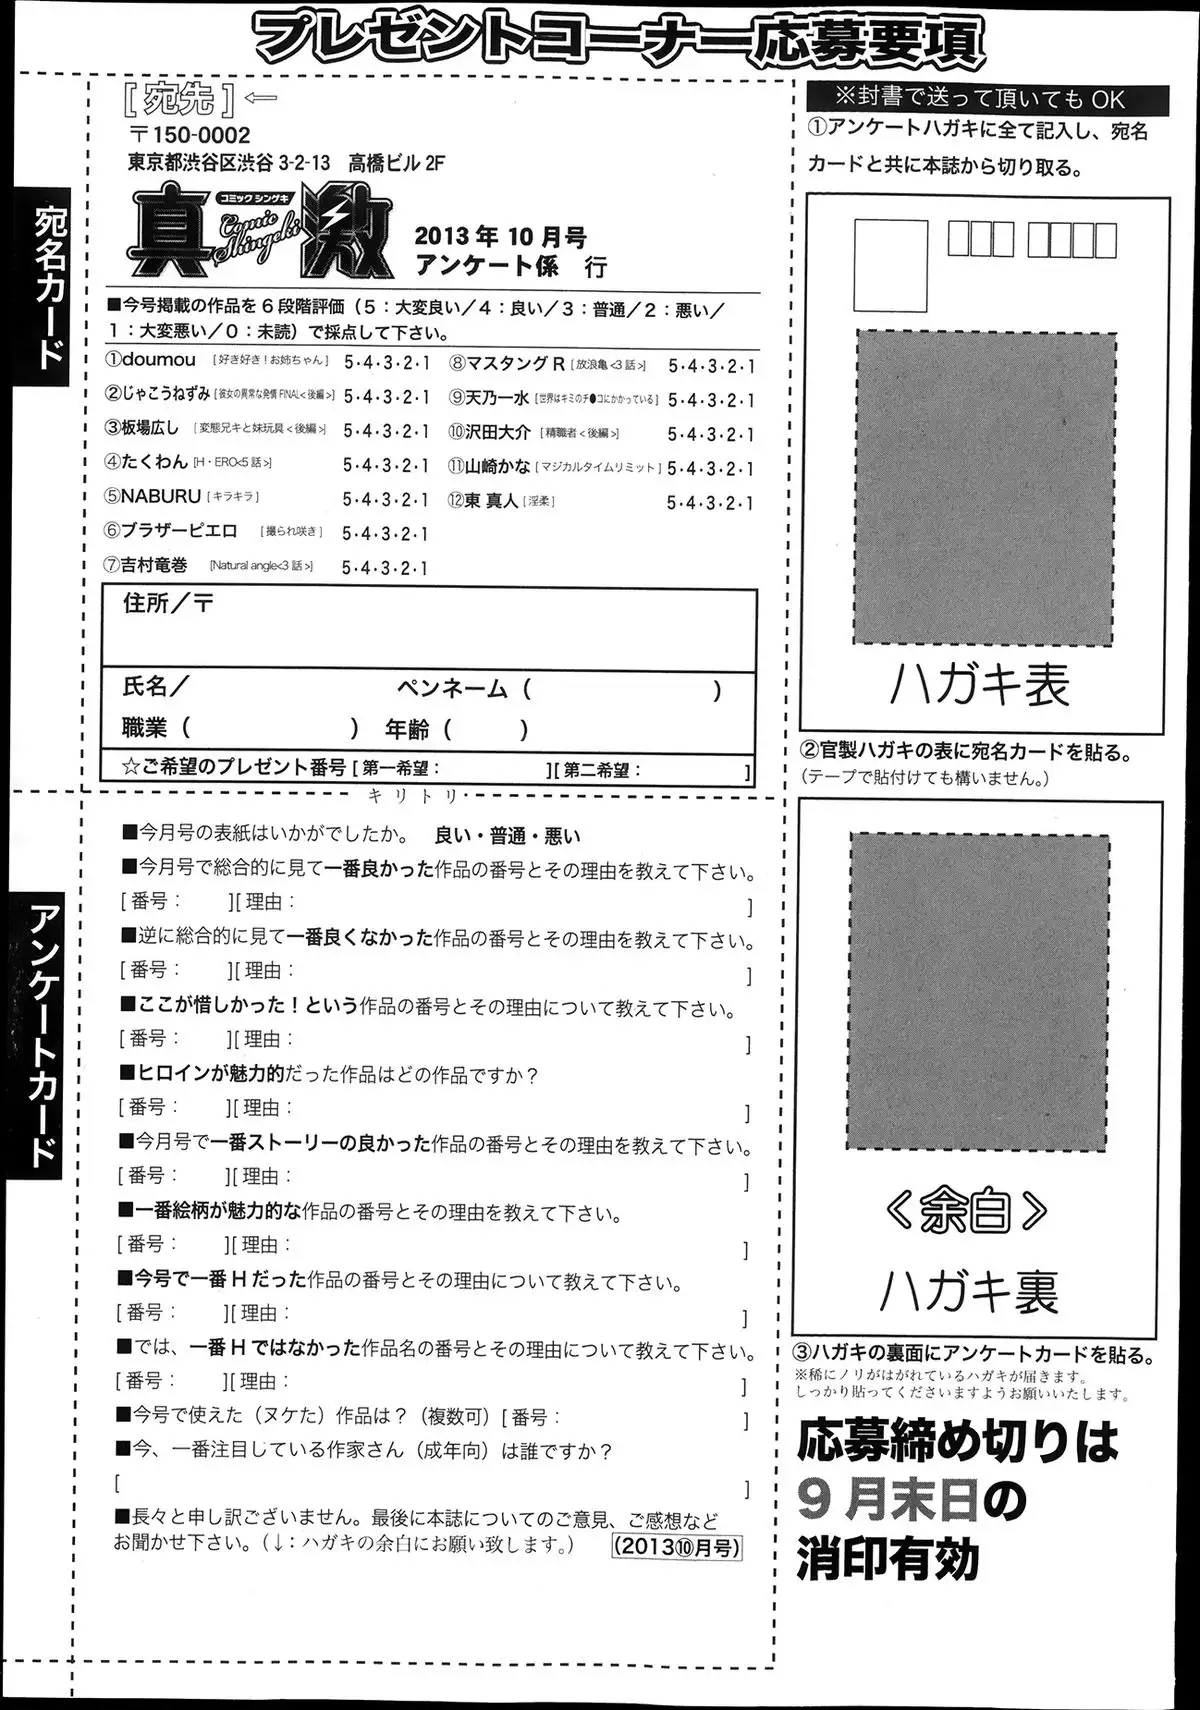 プレゼントコーナー応募要項
[ 宛先 ] ←
〒150-0002
東京都渋谷区渋谷 3-2-13　高橋ビル 2F
真激
コミック シンゲキ
Comic Shingeki
2013 年 10 月号
アンケート係　行
宛名カード
■今号掲載の作品を 6 段階評価（5：大変良い／4：良い／3：普通／2：悪い／
1：大変悪い／0：未読）で採点して下さい。
①doumou [好き好き！お姉ちゃん] 5・4・3・2・1
②じゃこうねずみ [彼女の異常な発情 FINAL<後編>] 5・4・3・2・1
③板場広し [変態兄キと妹玩具<後編>] 5・4・3・2・1
④たくわん [H・ERO<5話>] 5・4・3・2・1
⑤NABURU [キラキラ] 5・4・3・2・1
⑥ブラザーピエロ [撮られ咲き] 5・4・3・2・1
⑦吉村竜巻 [Natural angle<3話>] 5・4・3・2・1
⑧マスタング R [放浪亀<3話>] 5・4・3・2・1
⑨天乃一水 [世界はキミのチ●コにかかっている] 5・4・3・2・1
⑩沢田大介 [精職者<後編>] 5・4・3・2・1
⑪山崎かな [マジカルタイムリミット] 5・4・3・2・1
⑫東 真人 [淫柔] 5・4・3・2・1
住所／〒
氏名／　ペンネーム（　）
職業（　）　年齢（　）
☆ご希望のプレゼント番号 [ 第一希望：　][ 第二希望：　]
キリトリ
アンケートカード
■今月号の表紙はいかがでしたか。　良い・普通・悪い
■今月号で総合的に見て一番良かった作品の番号とその理由を教えて下さい。
[ 番号：　][ 理由：　]
■逆に総合的に見て一番良くなかった作品の番号とその理由を教えて下さい。
[ 番号：　][ 理由：　]
■ここが惜しかった！という作品の番号とその理由について教えて下さい。
[ 番号：　][ 理由：　]
■ヒロインが魅力的だった作品はどの作品ですか？
[ 番号：　][ 理由：　]
■今月号で一番ストーリーの良かった作品の番号とその理由を教えて下さい。
[ 番号：　][ 理由：　]
■一番絵柄が魅力的な作品の番号とその理由を教えて下さい。
[ 番号：　][ 理由：　]
■今号で一番 H だった作品の番号とその理由について教えて下さい。
[ 番号：　][ 理由：　]
■では、一番 H ではなかった作品名の番号とその理由について教えて下さい。
[ 番号：　][ 理由：　]
■今号で使えた（ヌケた）作品は？（複数可）[ 番号：　]
■今、一番注目している作家さん（成年向）は誰ですか？
[　]
■長々と申し訳ございません。最後に本誌についてのご意見、ご感想など
お聞かせ下さい。（↓：ハガキの余白にお願い致します。）　（2013⑩月号）
※封書で送って頂いても OK
①アンケートハガキに全て記入し、宛名
カードと共に本誌から切り取る。
ハガキ表
②官製ハガキの表に宛名カードを貼る。
（テープで貼付けても構いません。）
＜余白＞
ハガキ裏
③ハガキの裏面にアンケートカードを貼る。
※稀にノリがはがれているハガキが届きます。
しっかり貼ってくださいますようお願いいたします。
応募締め切りは
9 月末日の
消印有効